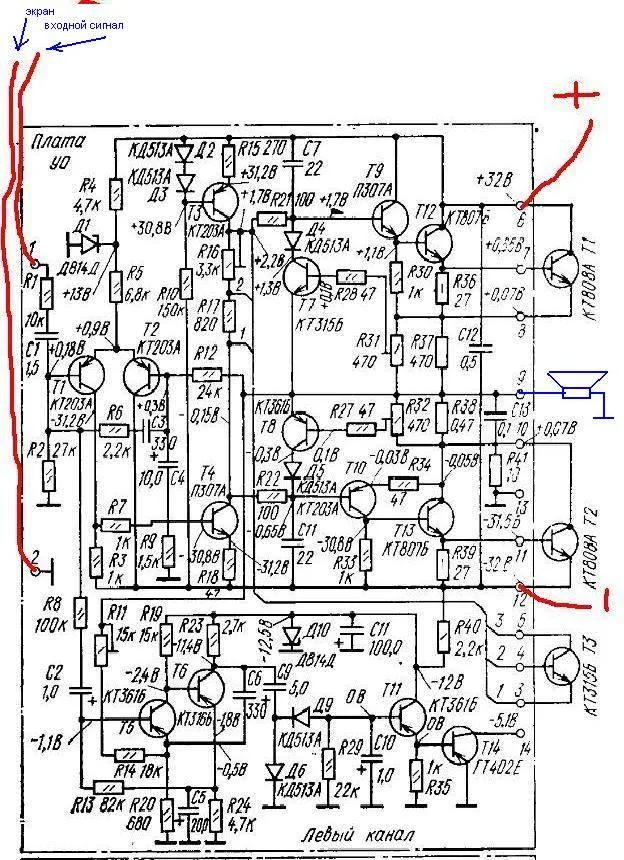 экран
входной сигнал
+
Плата
УО
КД513А
Д2
R15 270
C7
22
R4
4,7к
КД513А
Д3
+31,2В
+1,7В
R21 100
+1,7В
Т9
П307А
Т12
КТ807Б
+32В
6
Д1
Д814Д
+30,8В
Т3
КТ203А
Д4
КД513А
+1,1В
+0,95В
7
Т1
КТ808А
1
+13В
R5
6,8к
R16
3,3к
+2,2В
+1,3В
Т7
КТ315Б
+0,1В
R28 47
R30
1к
R36
27
+0,07В
8
R1
10к
R10
150к
2
R17
820
C1
1,5
+0,18В
+0,9В
Т2
КТ203А
R12
24к
1
R31
470
R37
470
C12
0,5
Т1
КТ203А
-31,2В
+0,3В
-0,15В
КТ361Б
Т8
R27 47
R32
470
R38
0,47
9
C13
0,1
10
+0,07В
R6
2,2к
C3
330
-0,3В
0,1В
R2
27к
10,0
C4
Т4
П307А
R22
100
Д5
КД513А
Т10
КТ203А
-0,03В
R34
47
-0,05В
R41
10
13
R7
1к
-0,65В
C11
22
Т13
КТ807Б
-31,5В
11
Т2
КТ808А
2
R3
1к
R9
1,5к
-30,8В
R18
47
-31,2В
-30,8В
R33
1к
R39
27
-32В
12
R8
100к
R11
15к
R19
15к
R23
2,7к
-12,5В
Д10
Д814Д
C11
100,0
R40
2,2к
3
5
2
4
1
3
Т3
КТ315Б
-11,4В
-2,4В
Т6
КТ316Б
C6
330
C9
5,0
Т11
КТ361Б
-12В
C2
1,0
КТ361Б
Т5
-1,8В
Д9
КД513А
0В
0В
-5,1В
14
-1,1В
R14 18к
-0,5В
Д6
КД513А
R29
22к
C10
1,0
Т14
ГТ402Е
1к
R35
R13 82к
R20
680
C5
200
R24
4,7к
Левый канал